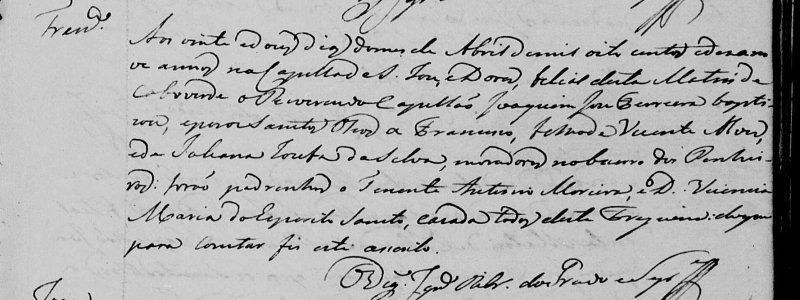 Fran.co
Aos vinte e dous dias do mes de Abril de mil oito centos e desano
ve annos na Capella de S. Joze e Dores, filial desta Matris de
Caboverde o Reverendo Capellão Joaquim Joze Ferreira bapti-
zou, e poz os Santos Oleos a Francisco, f.o de Vicente
e de Juliana da Silva, moradores no bairro dos Pinhei-
ros: forão padrinhos o Tenente Antonio Moreira, e D. Vicencia
Maria do Espirito Santo, casada todos desta Freguesia: do que
para constar fis este assento.
do Prado e